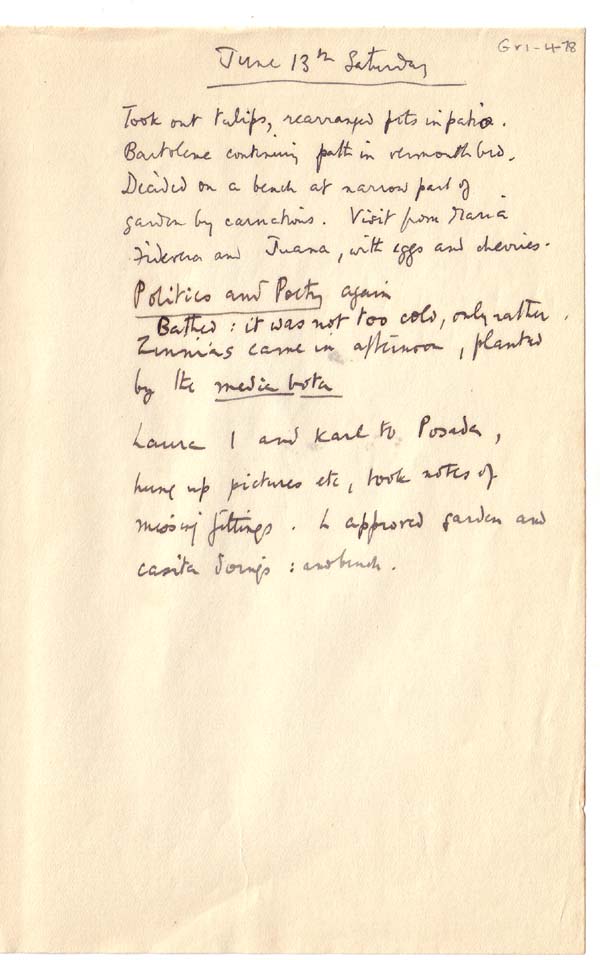 Gr1-4-78
June 13th Saturday
Took out tulips, rearranged pots in patio.
Bartolene continuing path in vermouth bed.
Decided on a bench at narrow part of
garden by carnations. Visit from Maria
and Juana, with eggs and cherries.
Politics and Poetry again
Bathed: it was not too cold, only rather.
Zinnias came in afternoon, planted
by the media bota
Laura I and Karl to Posada,
hung up pictures etc, took notes of
missing fittings. L approved garden and
casita doings: and bench.